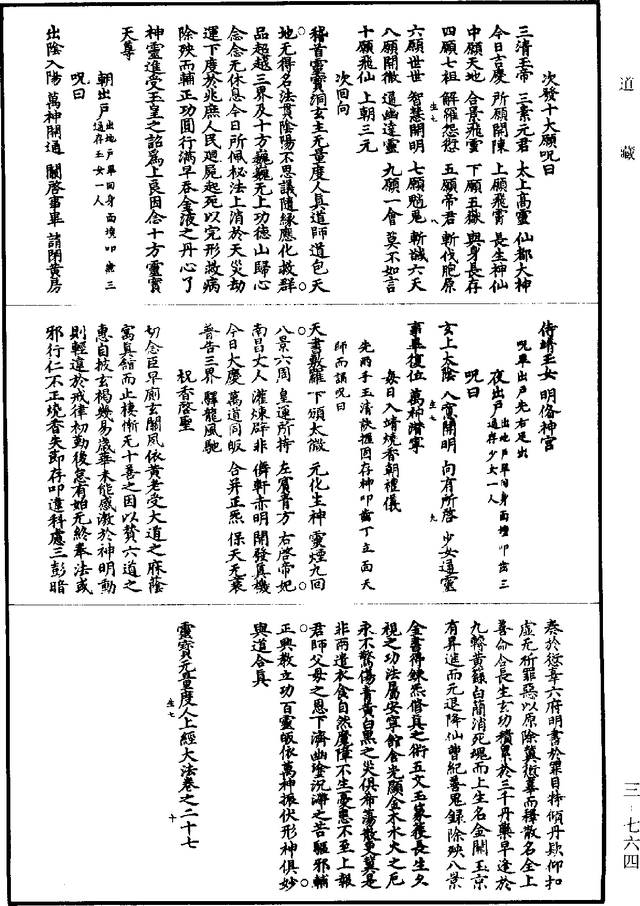 道藏
次發十大願呪曰
三清玉帝　三素元君　太上高靈　仙都大神
今日吉慶　所願開陳　上願飛霄　長生神仙
中願天地　合景飛雲　下願五嶽　與身長存
四願七祖　解羅怨徃　五願帝君　斬伐胞原
六願世世　智慧開明　七願魃鬼　斬誠六天
八願開徹　通幽達靈　九願一會　莫不如言
十願飛仙　上朝三元
次回向
稽首靈寶洞玄主无量度人具道師道包天
地无得名法貫陰陽不思議隨緣應化救群
品超越三界及十方巍巍无上功德山歸心
念念无休息今日所佩秘法上消於天災劫
運下度於兆庶人民迴屍起死以完形救病
除殃而輔正功圓行滿早吞金液之丹心了
神靈進受玉皇之詔爲上良因念十方靈寶
天尊
朝出戶出地戶畢回身面壇叩齒三通存玉女一人
呪曰
出陰入陽　萬神開通　關啓事畢　請閉黃房
侍靖玉女　明備神宮
呪畢出戶先右足出
夜出戶出地戶畢回身面壇叩齒三通存少女一人
呪曰
玄上太陰　八寶開明　向有所啓　少女通靈
事畢復位　萬神潛寧
每日入靖燒香朝禮儀
先兩手玉清訣握固存神叩齒丁立面天
師而誦呪曰
天書敷羅　下類太微　元化生神　靈煙九回
八景六周　皇運所持　左賓青方　右啓帝妃
南昌丈人　灌煉辟非　儕軒赤明　開發真機
今日大慶　萬道同皈　合并正炁　保天无衰
普香三界　驛龍風馳
祝香啓聖
切念臣早廁玄關夙依黃老受大道之庥蔭
寓真館而止棲慚无十善之因以贊六道之
惠自披玄褐幾易歲華未能感激於神明動
則輕違於戒律初勤後怠有始无終奉法或
邪行仁不正燒香失節存叩違科慮三彭暗
奏於愆辜六府明書於罪目持傾丹欵仰扣
虛无祈罪惡以原除冀愆辜而釋散名全上
善命合長生玄功積累於三千丹藥早逢於
九轉黃籙白簡消死塊而上生名金闕玉京
有昇進而无退降仙曹紀善鬼錄除殃八景
金書得鍊炁修真之術五文玉篆獲長生久
視之功法屬安寧館舍光顯金木水火之厄
永不驚傷青黃白黑之災俱希蕩散更冀是
非兩遣衣食自然魔障不生憂患不至上報
君師父母之恩下濟幽塗沉滯之苦驅邪輔
正興教立功百靈皈依萬神振伏形神俱妙
與道合真
靈寶无量度人上經大法卷之二十七
生七　十
三－七六四